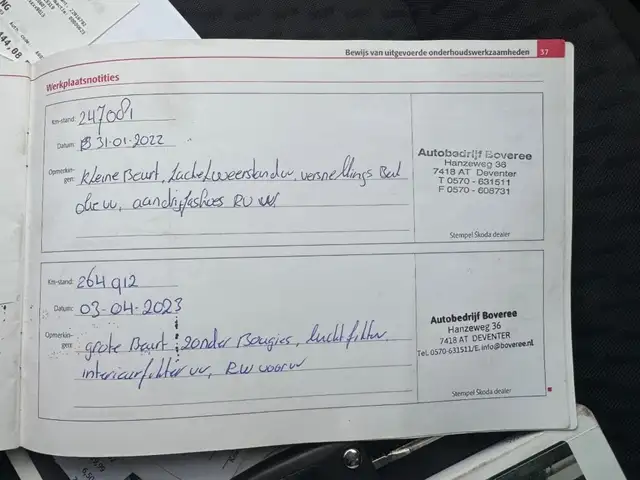 Bewijs van uitgevoerde onderhoudswerkzaamheden 37
Werkplaatsnotities
Km-stand: 247081
Datum: 31-01-2022
Opmerkin-
gen: Kleine Beurt, kachelweerstand vv, versnellings Bak
olie vv, aandrijfashoes RV vv
Autobedrijf Boveree
Hanzeweg 36
7418 AT Deventer
T 0570 - 631511
F 0570 - 608731
Stempel Škoda dealer
Km-stand: 264912
Datum: 03-04-2023
Opmerkin-
gen: grote Beurt zonder Bougies, luchtfilter
interieurfilter vv, RW voor vv
Autobedrijf Boveree
Hanzeweg 36
7418 AT DEVENTER
Tel. 0570-631511/E. info@boveree.nl
Stempel Škoda dealer
444,08